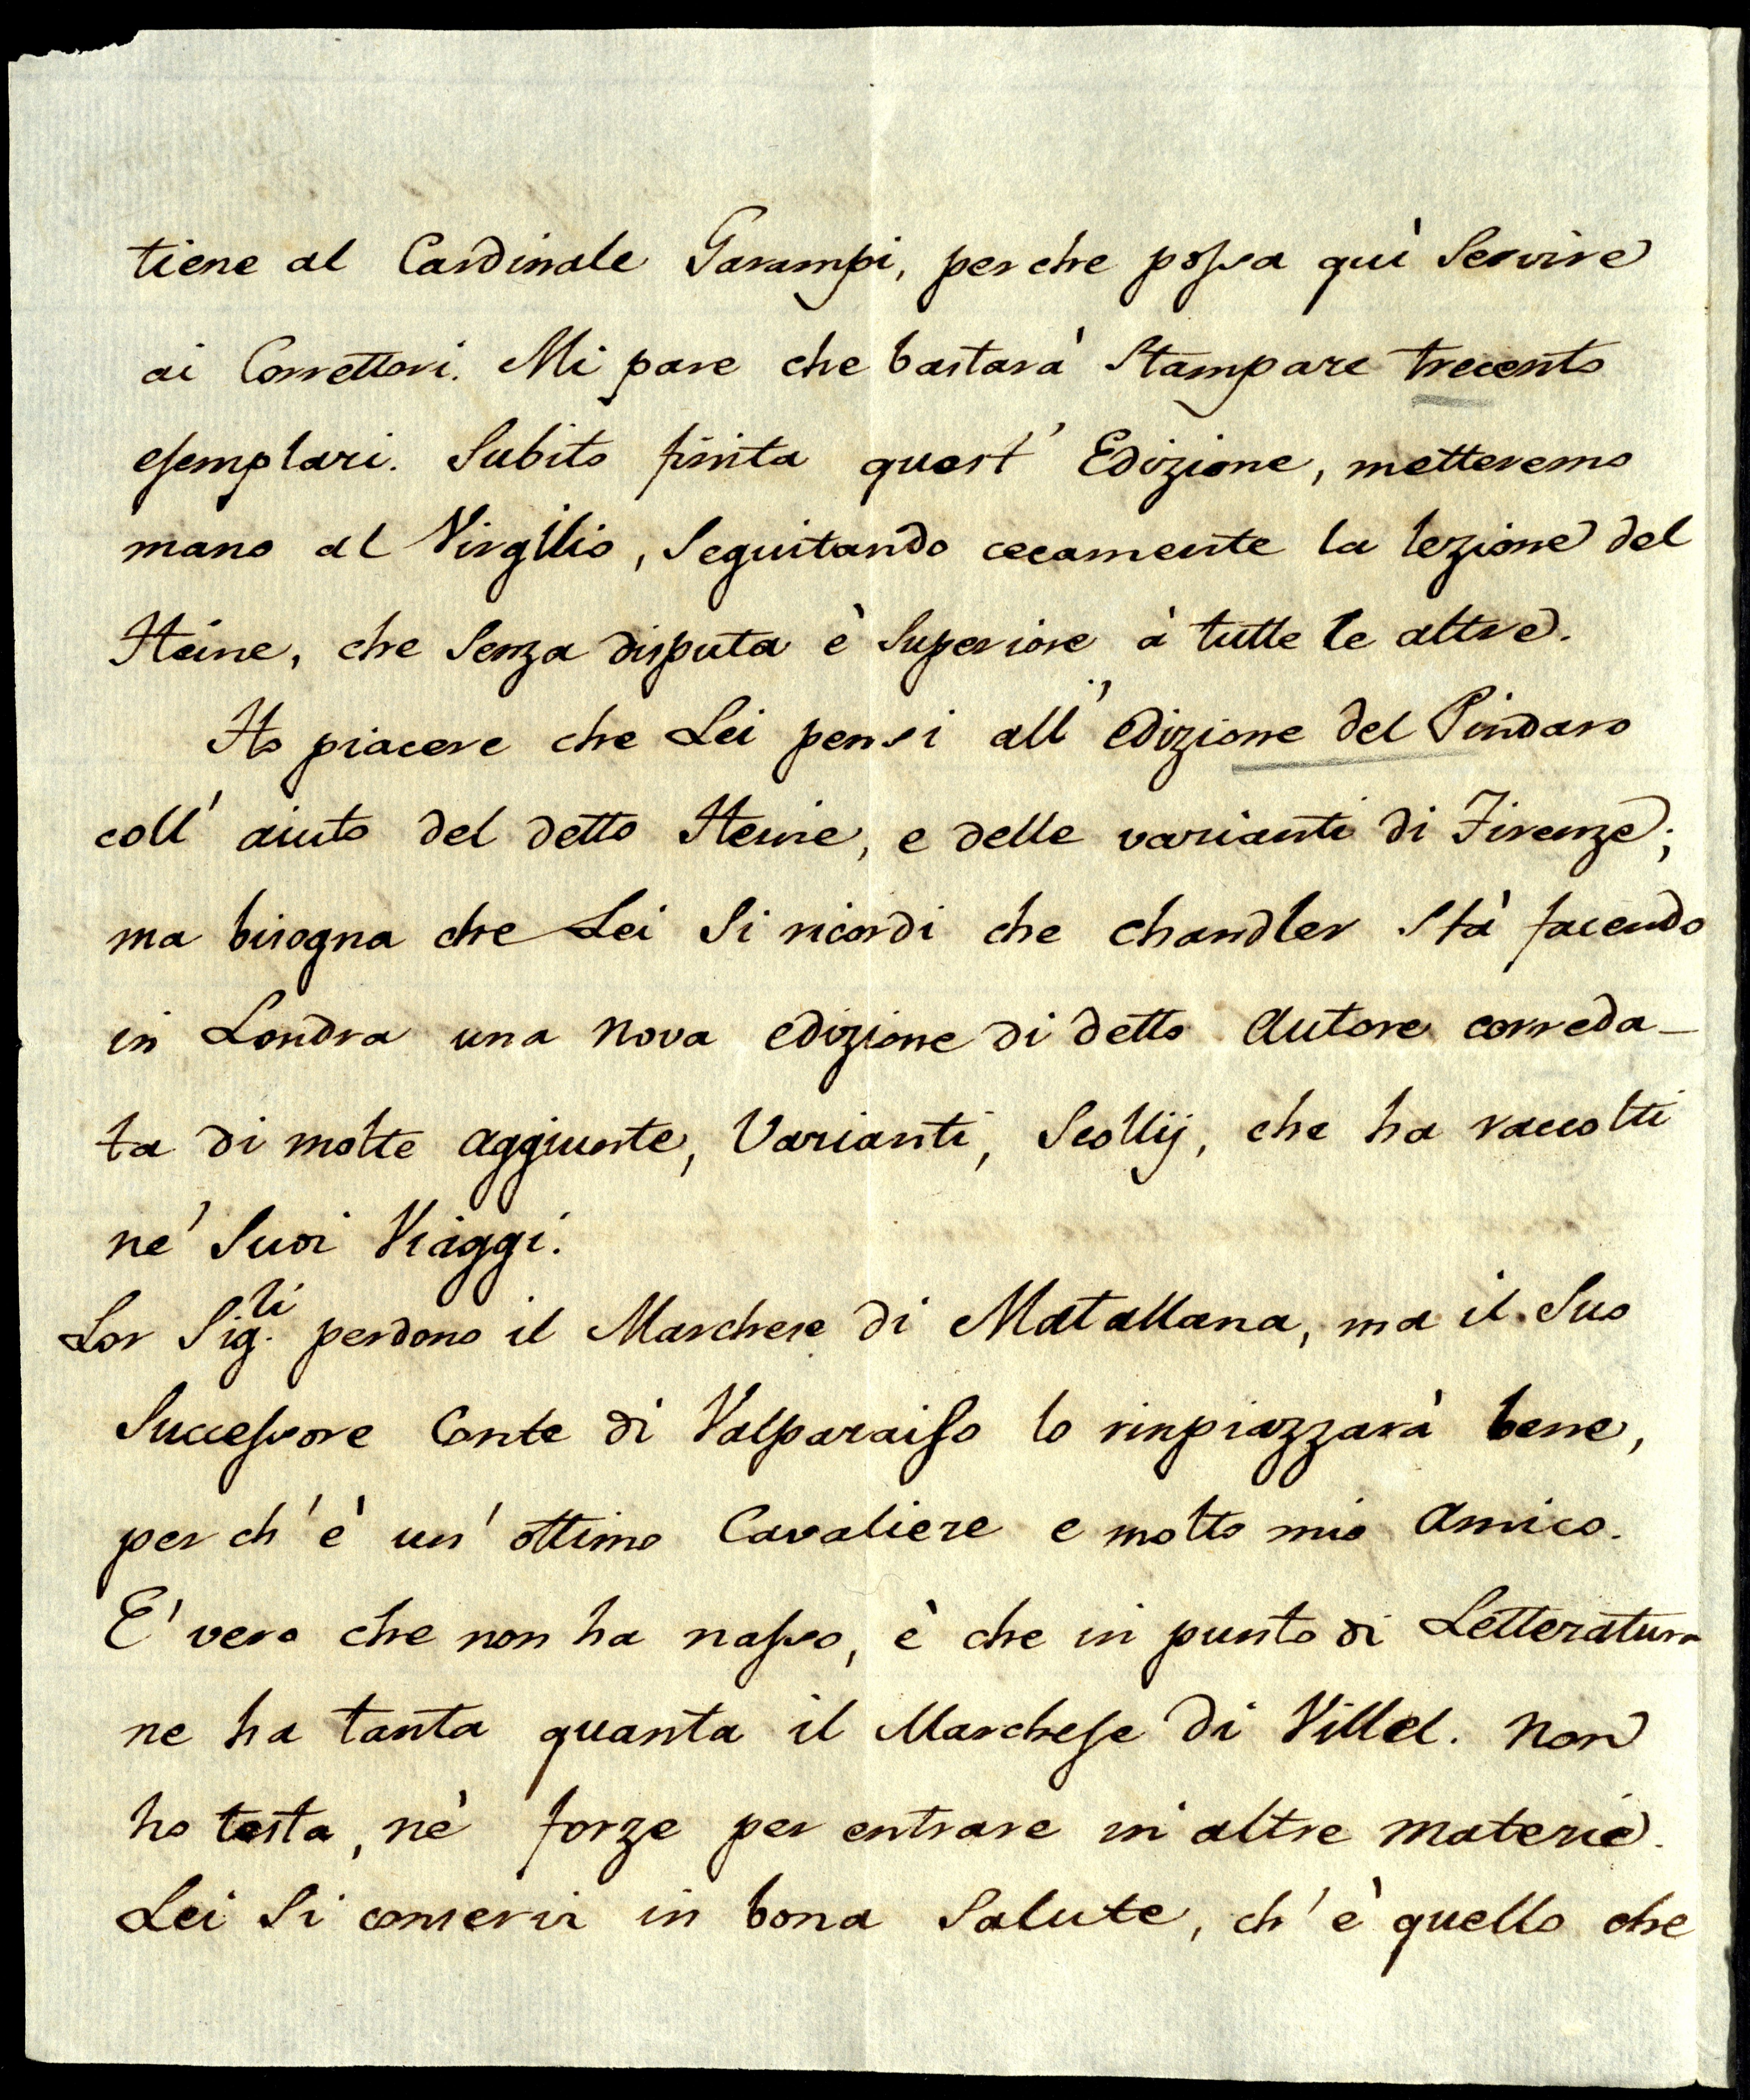 tiene al Cardinale Garampi, perche possa quì Servire
ai Correttori. Mi pare che bastarà Stampare trecento
esemplari. Subito finita quest' Edizione, metteremo
mano al Virgilio, Seguitando cecamente la lezione del
Heine, che Senza disputa è Superiore à tutte le altre.
Ho piacere che Lei pensi all' edizione del Pindaro
coll' aiuto del detto Heine, e delle varianti di Firenze;
ma bisogna che Lei Si ricordi che Chandler Stà facendo
in Londra una nova edizione di detto Autore correda-
ta di molte aggiunte, Varianti, Scollij, che ha raccolti
ne' Suoi Viaggi.
Lor Sig.li perdono il Marchese di Matallana, ma il Suo
Successore Conte di Valparaiso lo rinpiazzarà bene,
per ch' è un' ottimo Cavaliere e molto mio Amico.
E' vero che non ha nasso, è che in punto di Letteratura
ne ha tanta quanta il Marchese di Villel. Non
ho testa, nè forze per entrare in altre materie.
Lei Si conservi in bona Salute, ch' è quello che